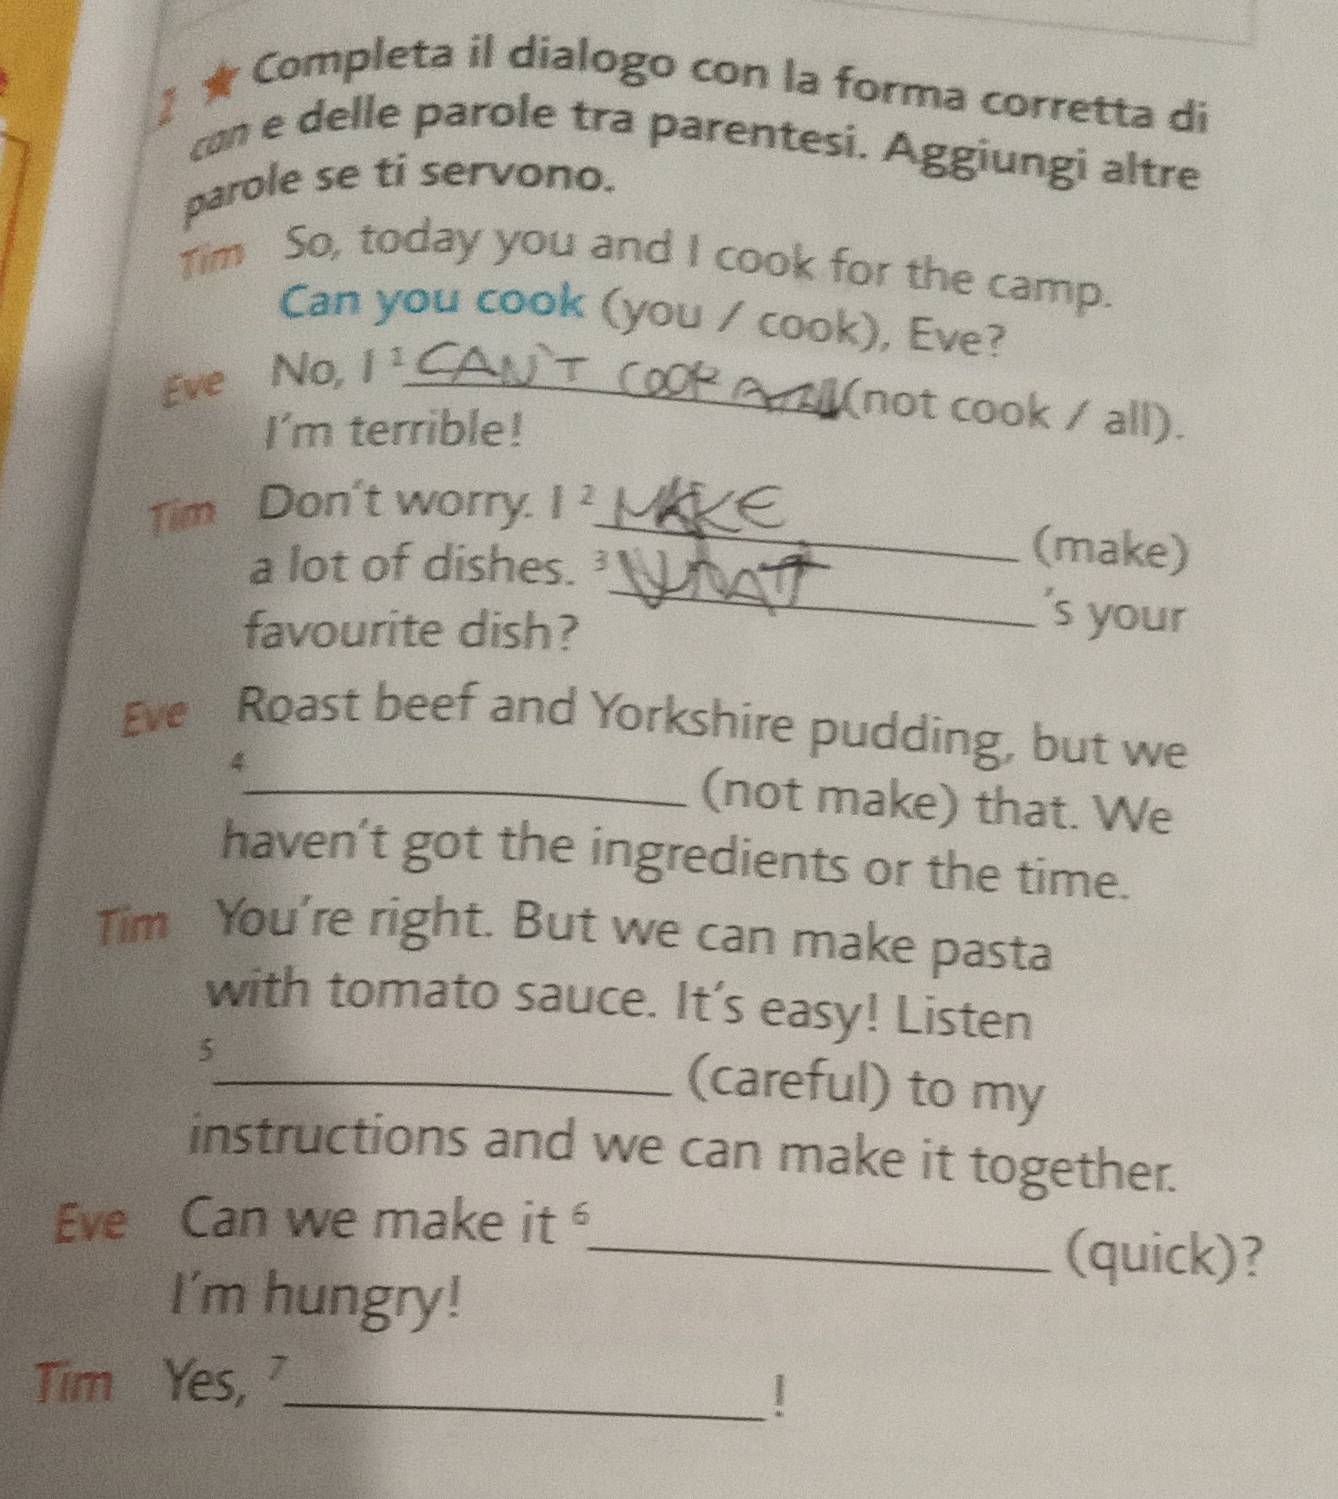 Completa il dialogo con la forma corretta di
can e delle parole tra parentesi. Aggiungi altre
parole se ti servono.
Tim So, today you and I cook for the camp.
Can you cook (you / cook), Eve?
Eve No, I 1 CAN'T COOK (not cook / all).
I'm terrible!
Tim Don't worry. I 2 MAKE (make)
a lot of dishes. 3 WHAT 's your
favourite dish?
Eve Roast beef and Yorkshire pudding, but we
4 ____ (not make) that. We
haven't got the ingredients or the time.
Tim You're right. But we can make pasta
with tomato sauce. It's easy! Listen
5 ____ (careful) to my
instructions and we can make it together.
Eve Can we make it 6 ____ (quick)?
I'm hungry!
Tim Yes, 7 ____ !